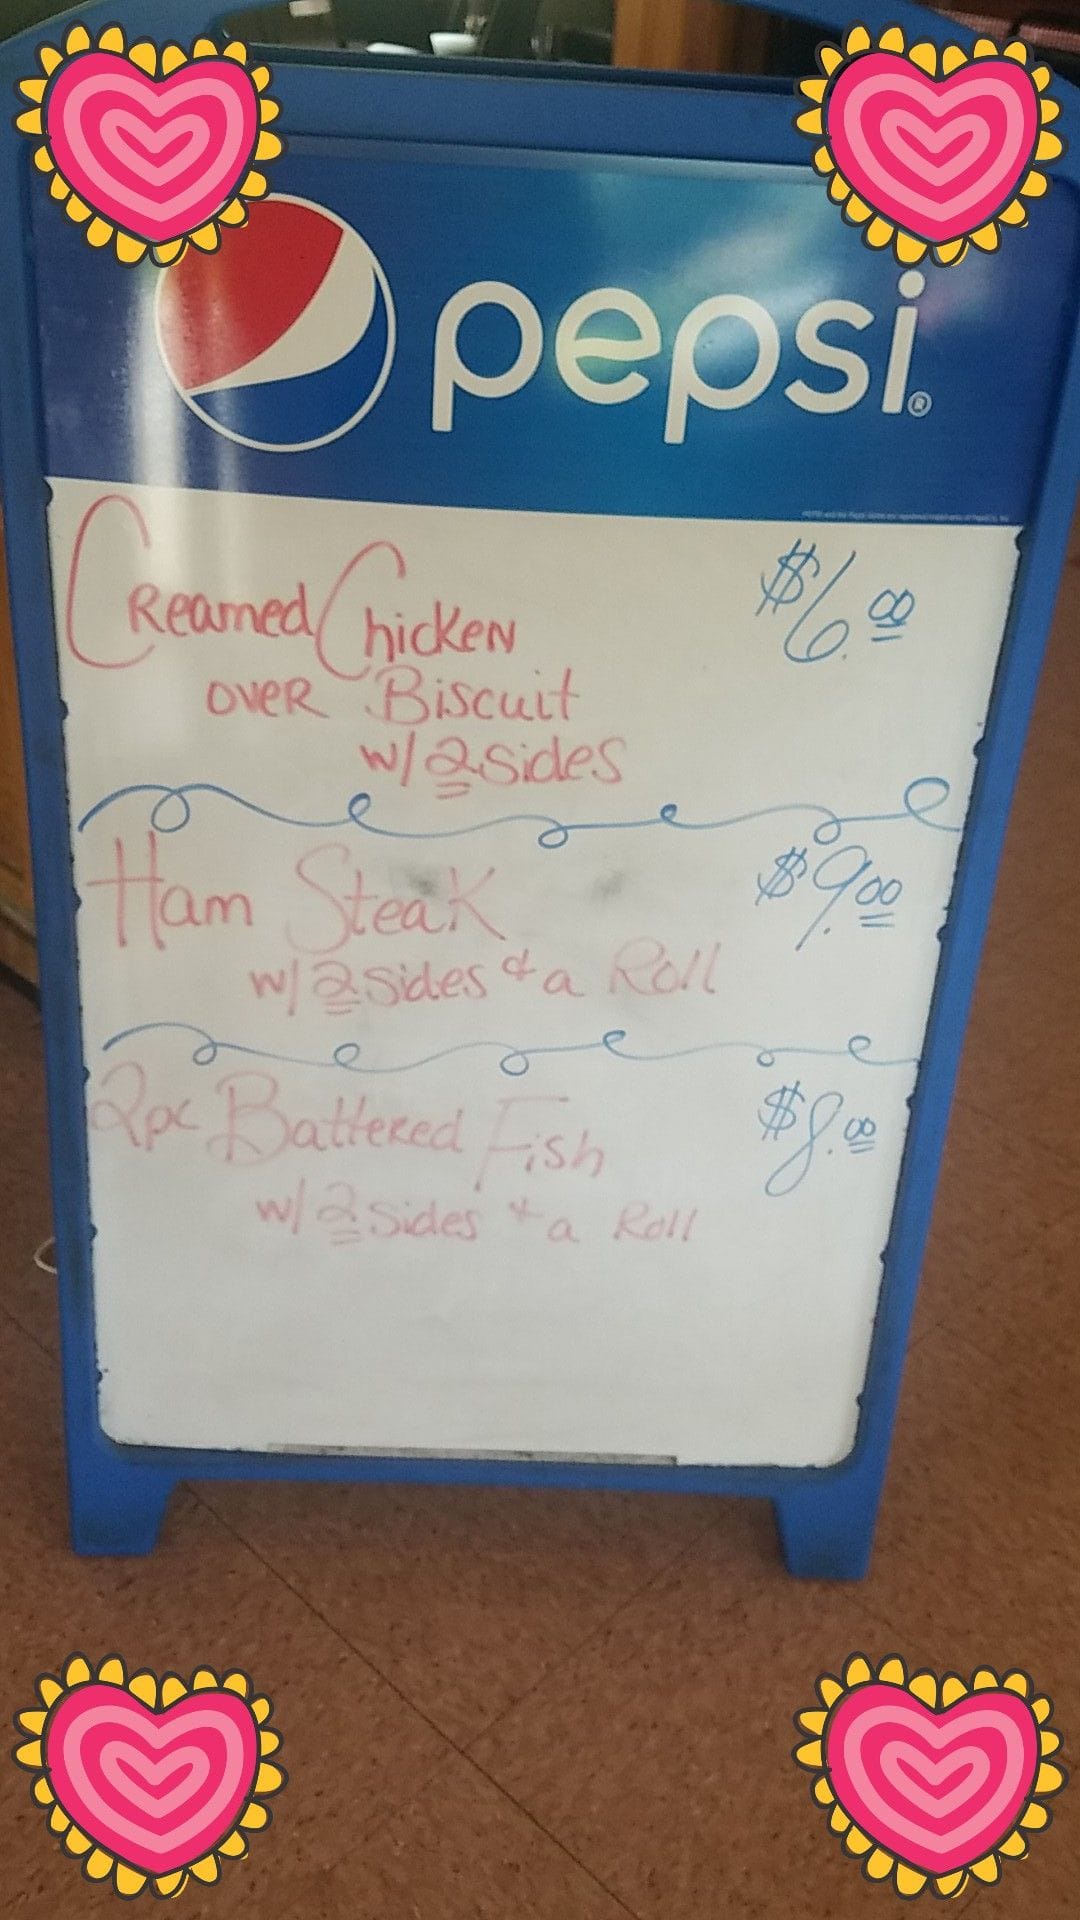 pepsi®
Creamed Chicken $6.00
over Biscuit
w/ 2 sides
Ham Steak $9.00
w/ 2 sides & a Roll
2pc Battered Fish $8.00
w/ 2 sides & a Roll